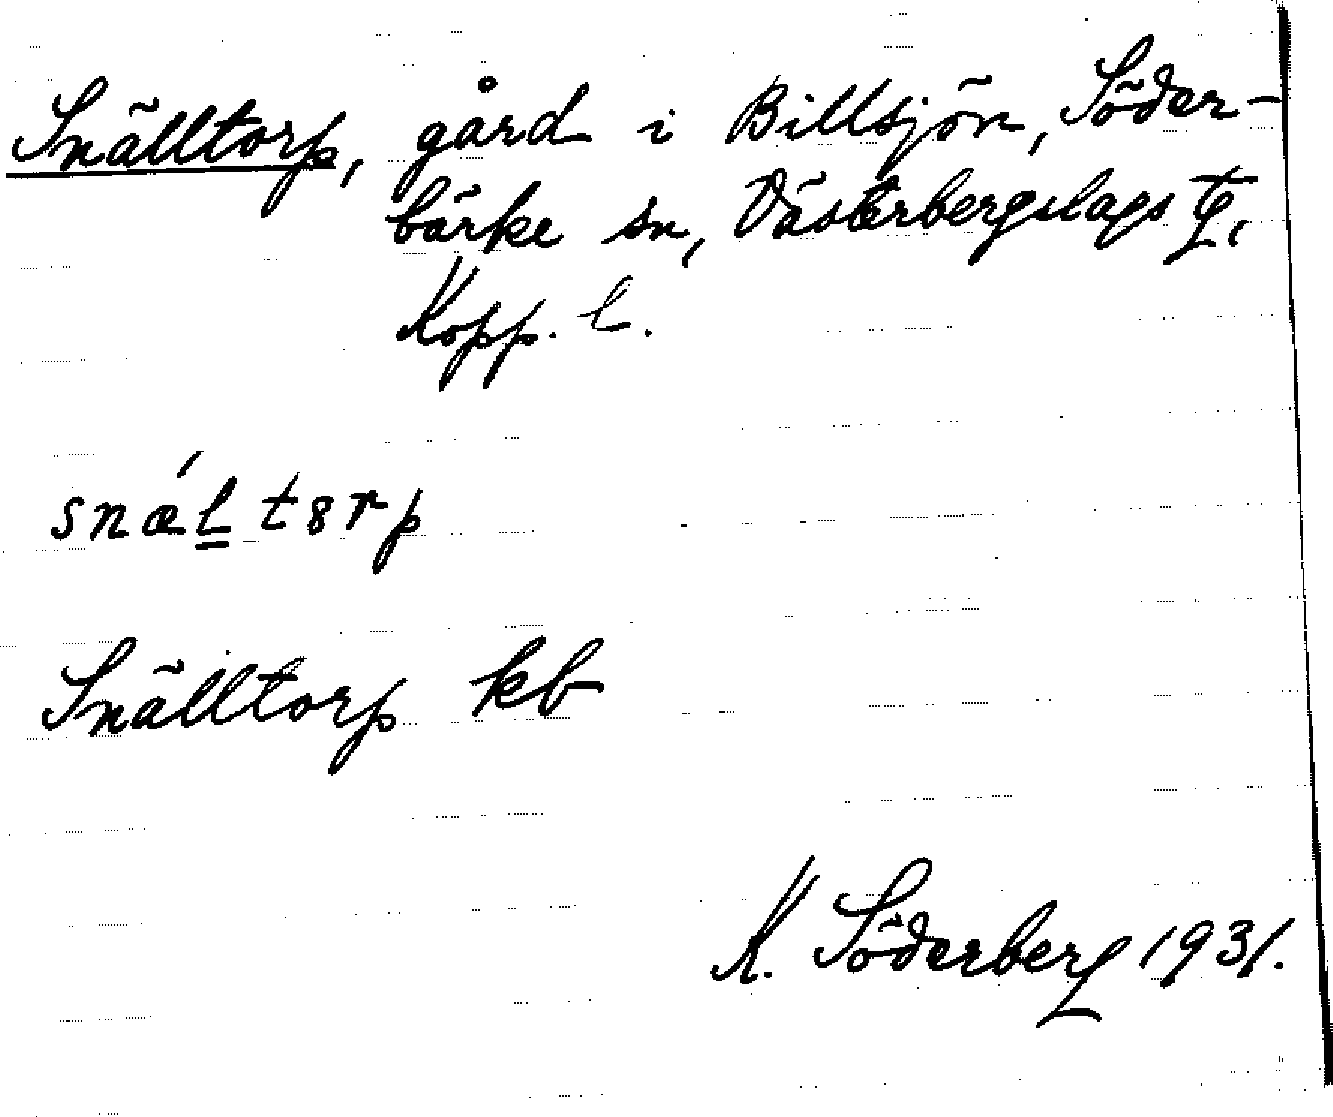 Snälltorp, gård i Billsjön, Söder-
bärke sn, Västerbergslags tg,
Kopp. l.
snǽl̳ t8rp
Snälltorp kb
K. Söderberg 1931.